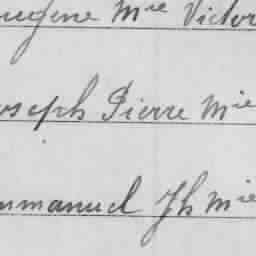 eugène Mie Victor
oseph Pierre Mie
mmanuel Jh Mie